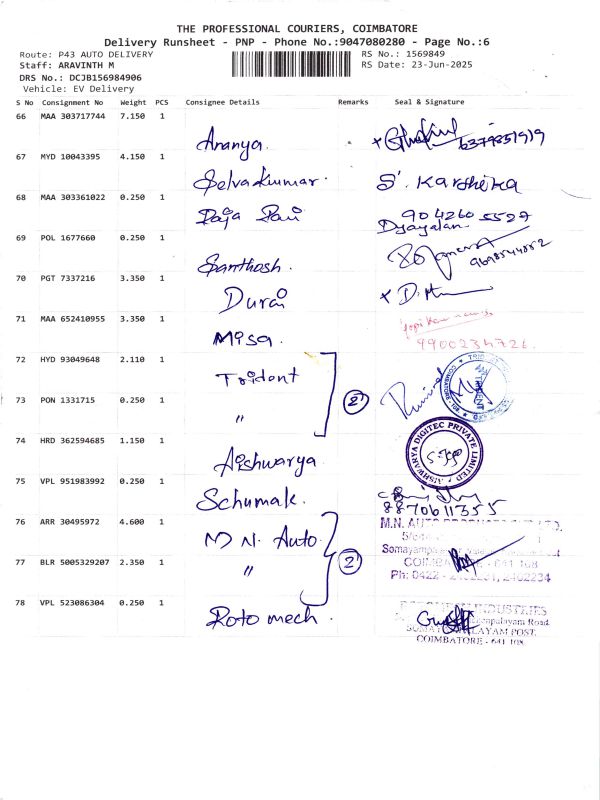 THE PROFESSIONAL COURIERS, COIMBATORE
Delivery Runsheet - PNP - Phone No.:9047080280 - Page No.:6
Route: P43 AUTO DELIVERY
RS No.: 1569849
Staff: ARAVINTH M
RS Date: 23-Jun-2025
DRS No.: DCJB156984906
Vehicle: EV Delivery
S No Consignment No Weight PCS Consignee Details Remarks Seal & Signature
66 MAA 303717744 7.150 1
Ananya.
67 MYD 10043395 4.150 1
Selvakumar. S. Karthika
68 MAA 303361022 0.250 1
Raja
904260 5527
Dyayalan
69 POL 1677660 0.250 1
Santhosh.
70 PGT 7337216 3.350 1
Durai
71 MAA 652410955 3.350 1
Misa.
9900234726.
72 HYD 93049648 2.110 1
Trident
TRIDENT
73 PON 1331715 0.250 1
" 2
74 HRD 362594685 1.150 1
Aishwarya
AISHWARYA DIGITEC PRIVATE LIMITED
75 VPL 951983992 0.250 1
Schumak.
8870611355
76 ARR 30495972 4.600 1
M.N. Auto.
M.N. AUTO
COIMBATORE - 641 108
77 BLR 5005329207 2.350 1
" 2
Ph: 0422 2402234
78 VPL 523086304 0.250 1
Roto mech.
INDUSTRIES
Road
PALAYAM POST.
COIMBATORE - 641 108